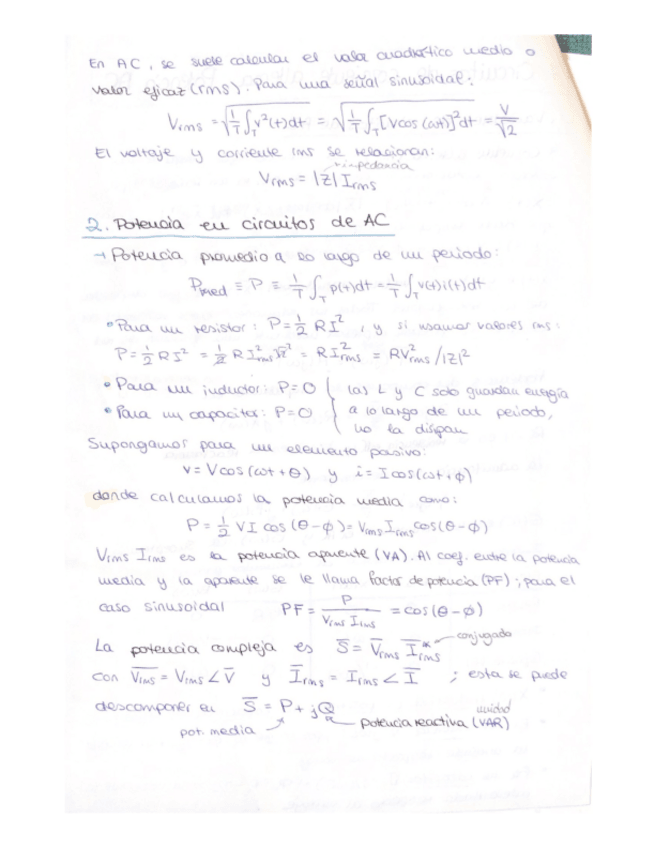 En AC, se suele calcular el valor cuadrático medio o
valor eficaz (rms). Para una señal sinusoidal:
Vrms = √(1/T ∫_T v²(t)dt) = √(1/T ∫_T [V cos(ωt)]² dt) = V/√2
El voltaje y corriente rms se relacionan:
→ impedancia
Vrms = |Z| Irms
2. Potencia en circuitos de AC
→ Potencia promedio a lo largo de un periodo:
Pmed ≡ P ≡ 1/T ∫_T p(t)dt = 1/T ∫_T v(t)i(t)dt
• Para un resistor: P = 1/2 RI², y si usamos valores rms:
P = 1/2 RI² = 1/2 R I²rms √2² = R I²rms = R V²rms / |Z|²
• Para un inductor: P = 0 { las L y C solo guardan energía
• Para un capacitor: P = 0 a lo largo de un periodo,
no la disipan
Supongamos para un elemento pasivo:
v = V cos(ωt + θ) y i = I cos(ωt + ϕ)
donde calculamos la potencia media como:
P = 1/2 VI cos(θ - ϕ) = Vrms Irms cos(θ - ϕ)
Vrms Irms es la potencia aparente (VA). Al coef. entre la potencia
media y la aparente se le llama factor de potencia (PF); para el
caso sinusoidal PF = P / (Vrms Irms) = cos(θ - ϕ)
La potencia compleja es S̅ = V̅rms I̅*rms ← conjugado
con V̅rms = Vrms ∠ V̅ y I̅rms = Irms ∠ I̅ ; esta se puede
descomponer en S̅ = P + jQ unidad
pot. media potencia reactiva (VAR)